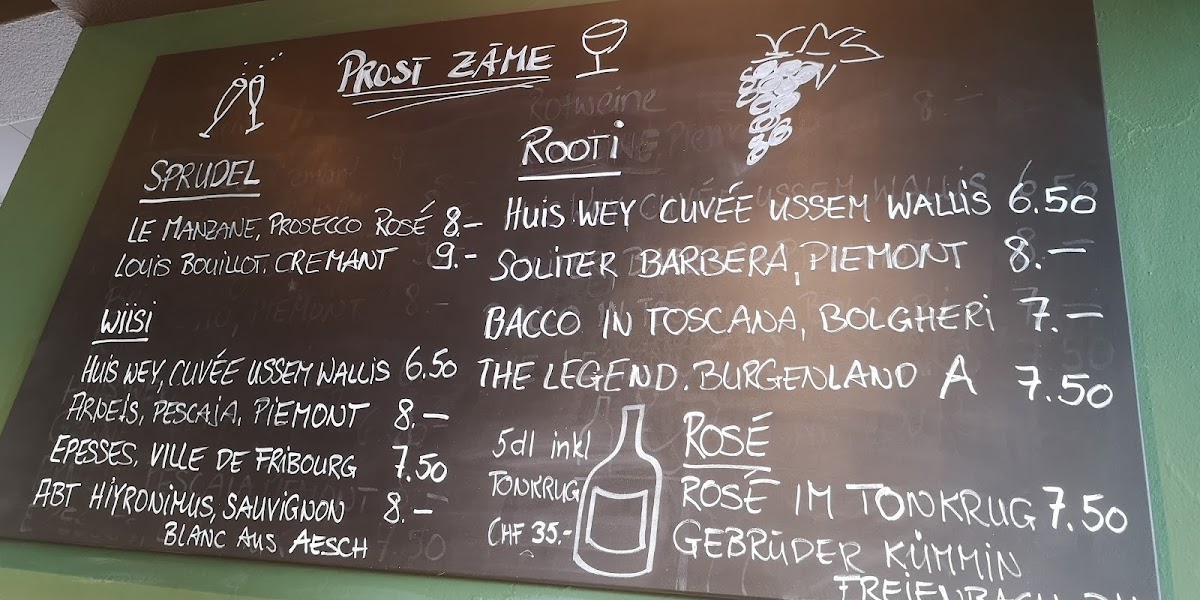 PROST ZÄME
SPRUDEL
LE MANZANE, PROSECCO ROSÉ 8.–
LOUIS BOUILLOT. CREMANT 9.-
WIISI
HUIS WEY, CUVÉE USSEM WALLIS 6.50
ARNEIS, PESCAJA, PIEMONT 8.–
EPESSES, VILLE DE FRIBOURG 7.50
ABT HIYRONIMUS, SAUVIGNON 8.–
BLANC AUS AESCH
Rotweine
ROOTI
HUIS WEY CUVÉE USSEM WALLIS 6.50
SOLITER BARBERA, PIEMONT 8.–
BACCO IN TOSCANA, BOLGHERI 7.–
THE LEGEND. BURGENLAND A 7.50
5dl inkl
TONKRUG
CHF 35.-
ROSÉ
ROSÉ IM TONKRUG 7.50
GEBRÜDER KÜMMIN
FREIENBACH